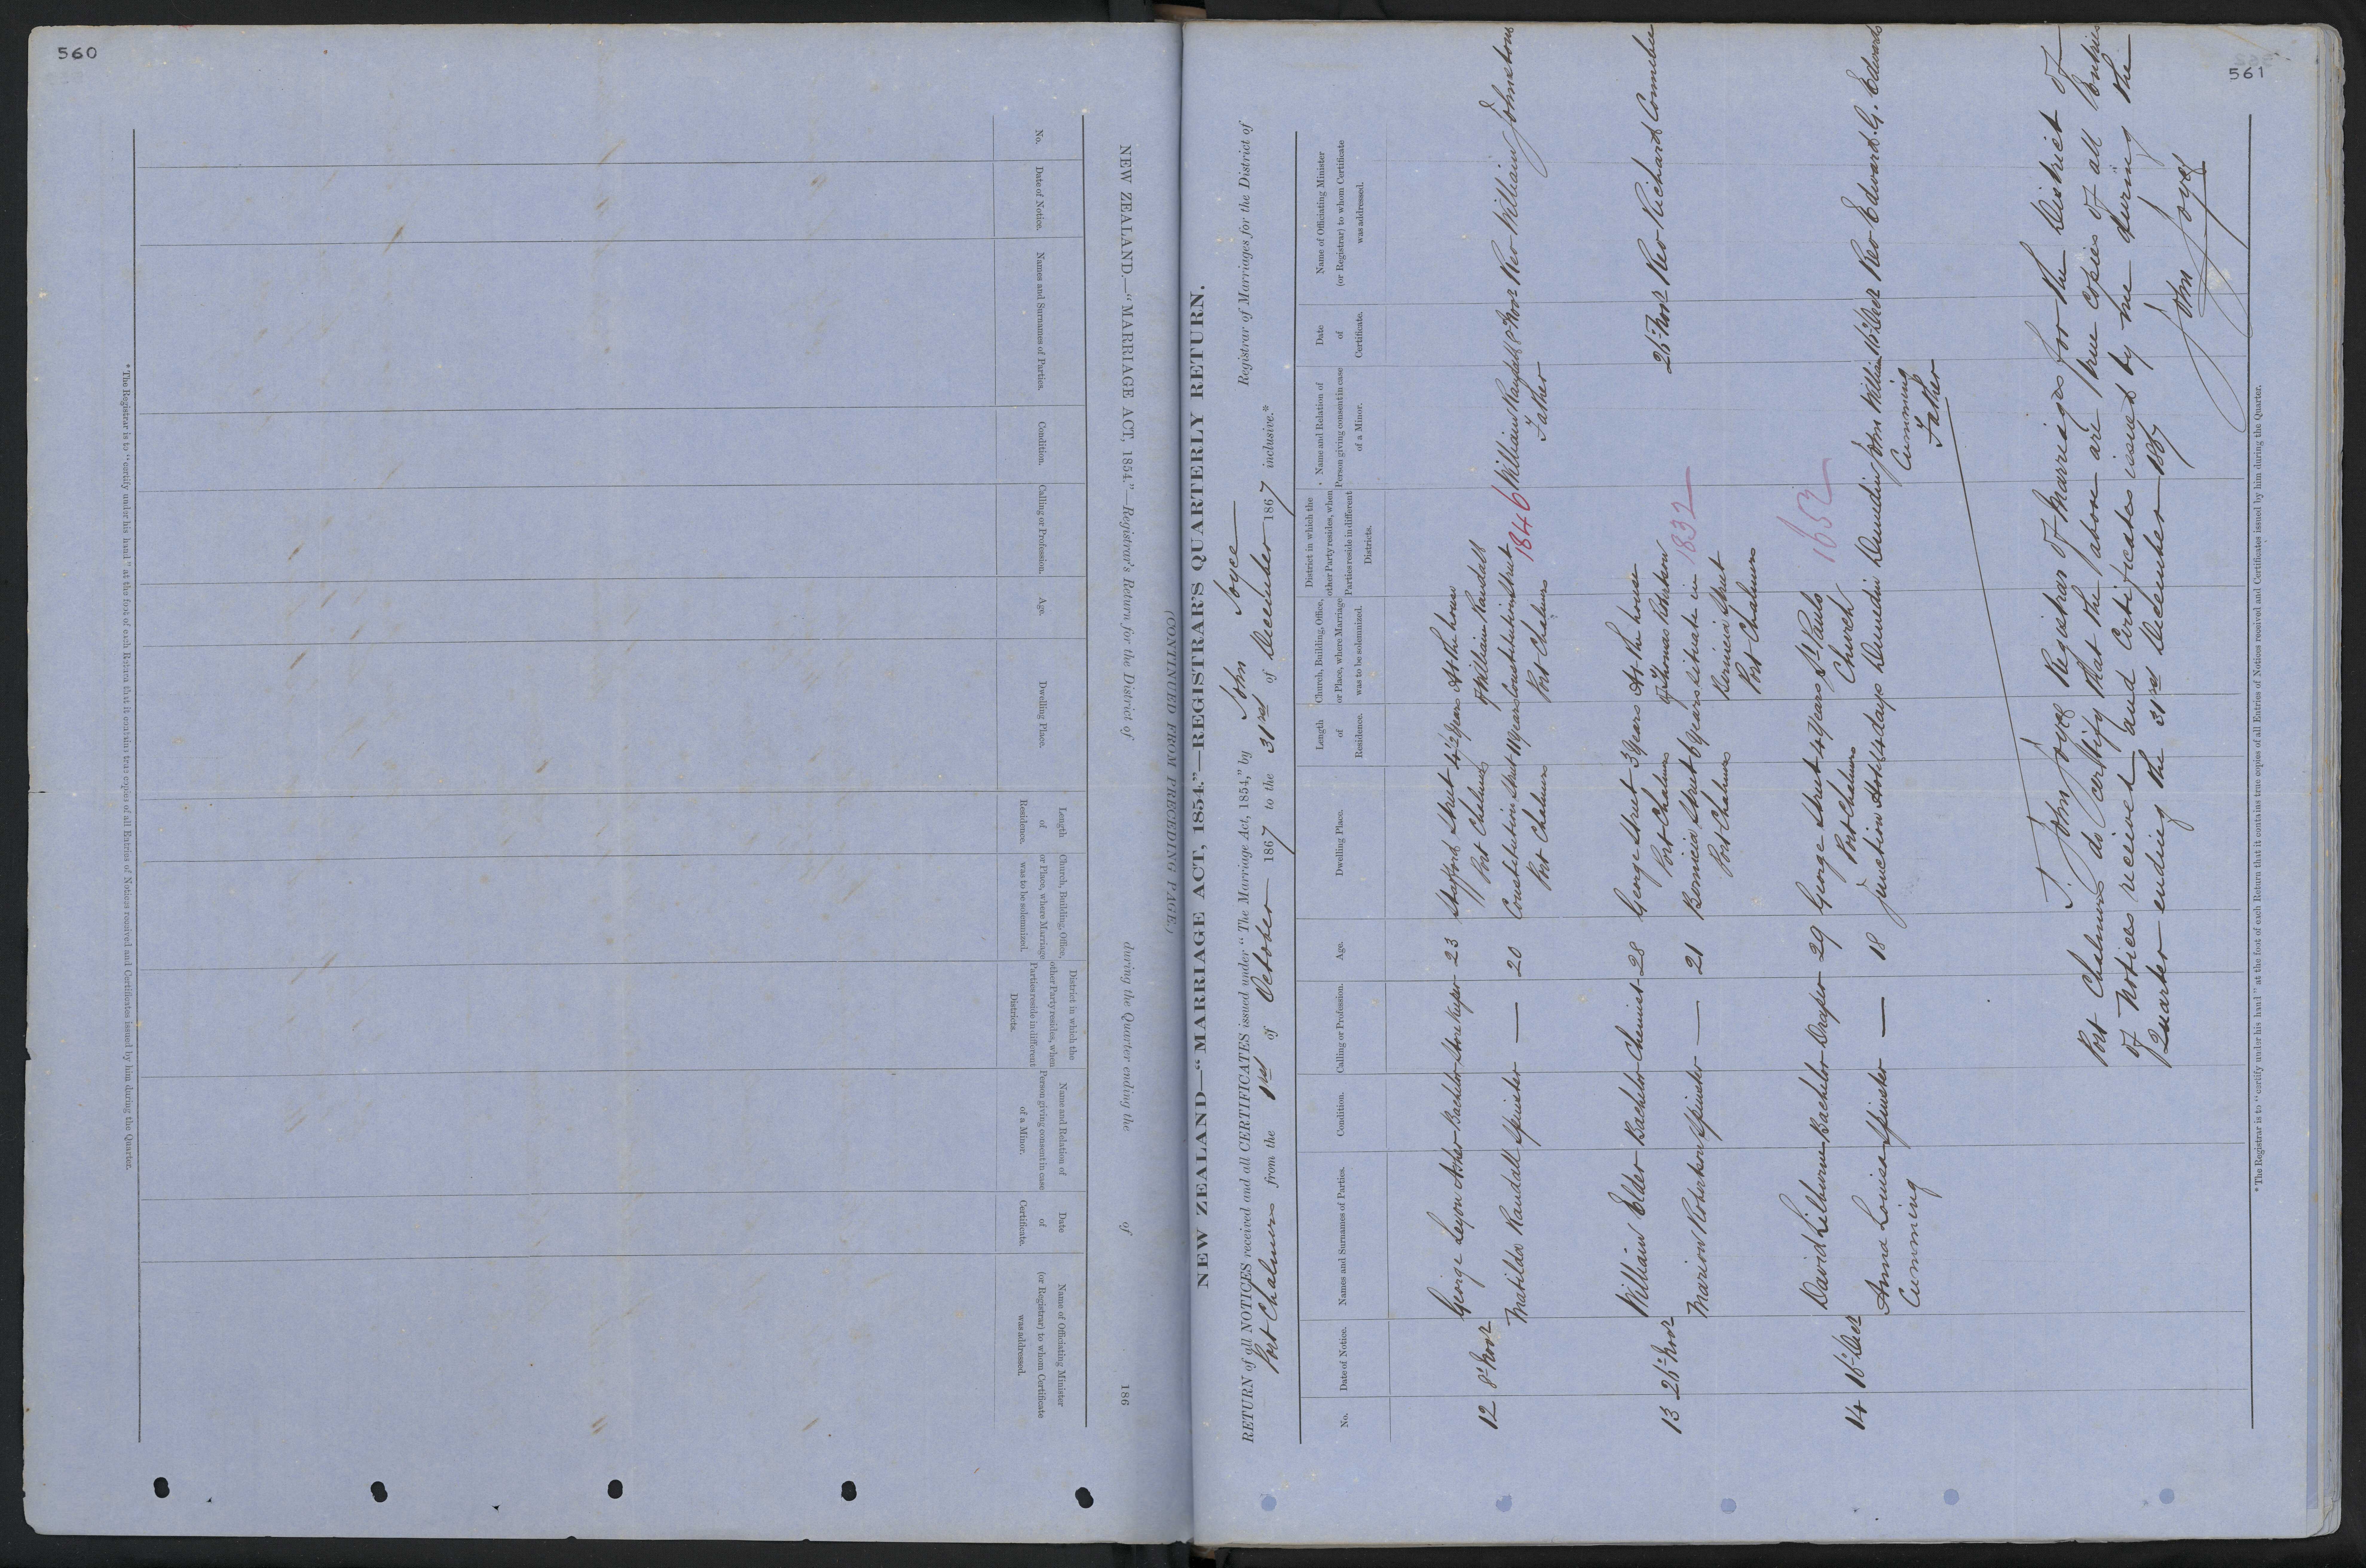 560
NEW ZEALAND.—"MARRIAGE ACT, 1854."—Registrar's Return for the District of during the Quarter ending the of 186
(CONTINUED FROM PRECEDING PAGE.)
No.
Date of Notice.
Names and Surnames of Parties.
Condition.
Calling or Profession.
Age.
Dwelling Place.
Length
of
Residence.
Church, Building, Office,
or Place, where Marriage
was to be solemnized.
District in which the
other Party resides, when
Parties reside in different
Districts.
Name and Relation of
Person giving consent in case
of a Minor.
Date
of
Certificate.
Name of Officiating Minister
(or Registrar) to whom Certificate
was addressed.
*The Registrar is to "certify under his hand" at the foot of each Return that it contains true copies of all Entries of Notices received and Certificates issued by him during the Quarter.
561
NEW ZEALAND—"MARRIAGE ACT, 1854."—REGISTRAR'S QUARTERLY RETURN.
RETURN of all NOTICES received and all CERTIFICATES issued under "The Marriage Act, 1854," by John Joyce Registrar of Marriages for the District of
Port Chalmers from the 1st of October 1867 to the 31st of December 1867 inclusive.*
No.
Date of Notice.
Names and Surnames of Parties.
Condition.
Calling or Profession.
Age.
Dwelling Place.
Length
of
Residence.
Church, Building, Office,
or Place, where Marriage
was to be solemnized.
District in which the
other Party resides, when
Parties reside in different
Districts.
Name and Relation of
Person giving consent in case
of a Minor.
Date
of
Certificate.
Name of Officiating Minister
(or Registrar) to whom Certificate
was addressed.
George Leyon Asher Bachelor Storekeeper 23 Stafford Street 4½ Years At the house
12 8th Novr Port Chalmers of William Randall
Matilda Randall Spinster — 20 Constitution Street 11 years Constitution Street 1846 William Randall 8 Novr Rev William Johnstone
Port Chalmers Port Chalmers Father
William Elder Bachelor Chemist 28 George Street 3 Years At the house
13 26th Novr Port Chalmers of Thomas Robertson 26th Novr Rev Richard Connebee
Marion Robertson Spinster — 21 Bernicia Street 6 years situate in 1832
Port Chalmers Bernicia Street
Port Chalmers
David Lilburne Bachelor Draper 29 George Street 4 Years St Pauls 1652
14 16th Decr Port Chalmers Church
Anna Louisa Spinster — 18 Junction Hotel 4 days Dunedin Dunedin John William 16th Decr Rev Edward G. Edwards
Cumming Cumming
Father
I. John Joyce Registrar of Marriages for the District of
Port Chalmers do certify that the above are true copies of all Entries
of Notices received and Certificates issued by me during the
Quarter ending the 31st December 1867
John Joyce
*The Registrar is to "certify under his hand" at the foot of each Return that it contains true copies of all Entries of Notices received and Certificates issued by him during the Quarter.